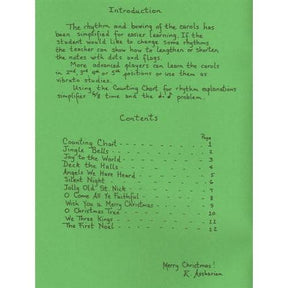 Introduction
The rhythm and bowing of the carols has
been simplified for easier learning. If the
student would like to change some rhythms
the teacher can show how to lengthen or shorten
the notes with dots and flags.
More advanced players can learn the carols
in 2nd, 3rd 4th or 5th positions or use them as
vibrato studies.
Using the Counting Chart for rhythm explanations
simplifies 6/8 time and the problem.
Contents
Page
Counting Chart 1
Jingle Bells 2
Joy to the World 3
Deck the Halls 4
Angels We Have Heard 5
Silent Night 6
Jolly Old St. Nick 7
O Come All Ye Faithful 8
Wish You a Merry Christmas 9
O Christmas Tree 10
We Three Kings
The First Noel 12
Merry Christmas!